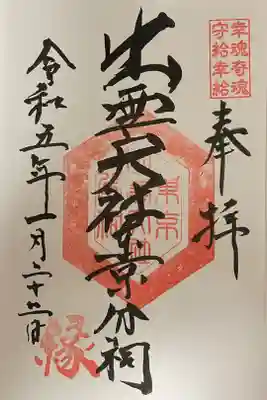 幸魂奇魂
守給幸給
奉拝
出雲大社東京分祠
令和五年一月二十二日
縁